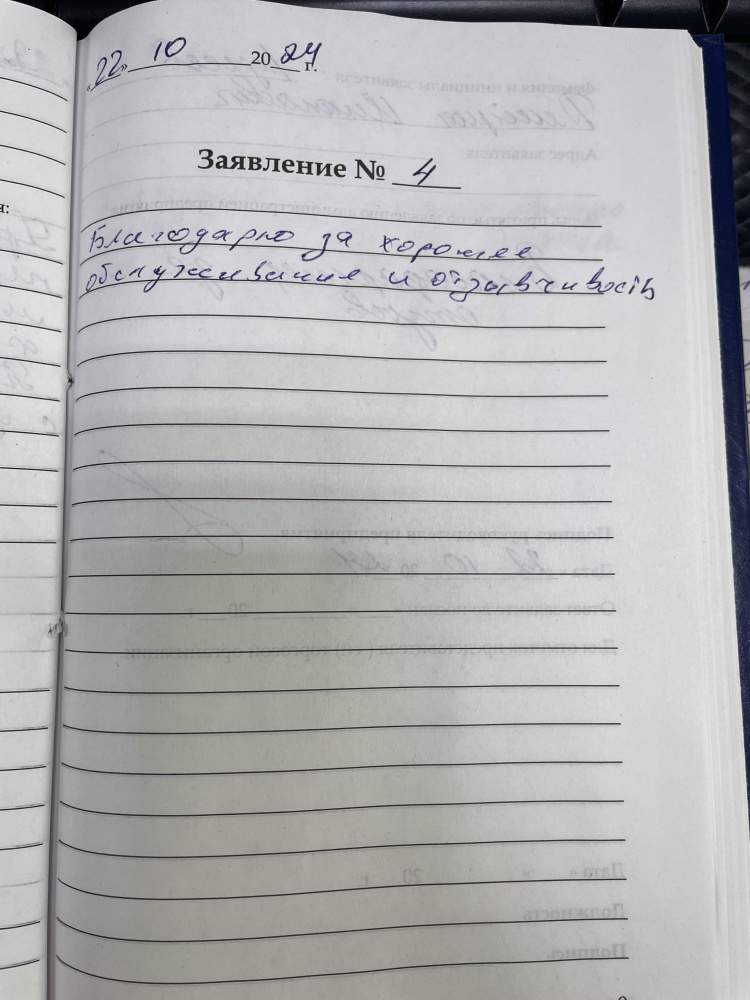 «22» 10 2024 г.
Заявление № 4
Благодарю за хорошее
обслуживание и отзывчивость